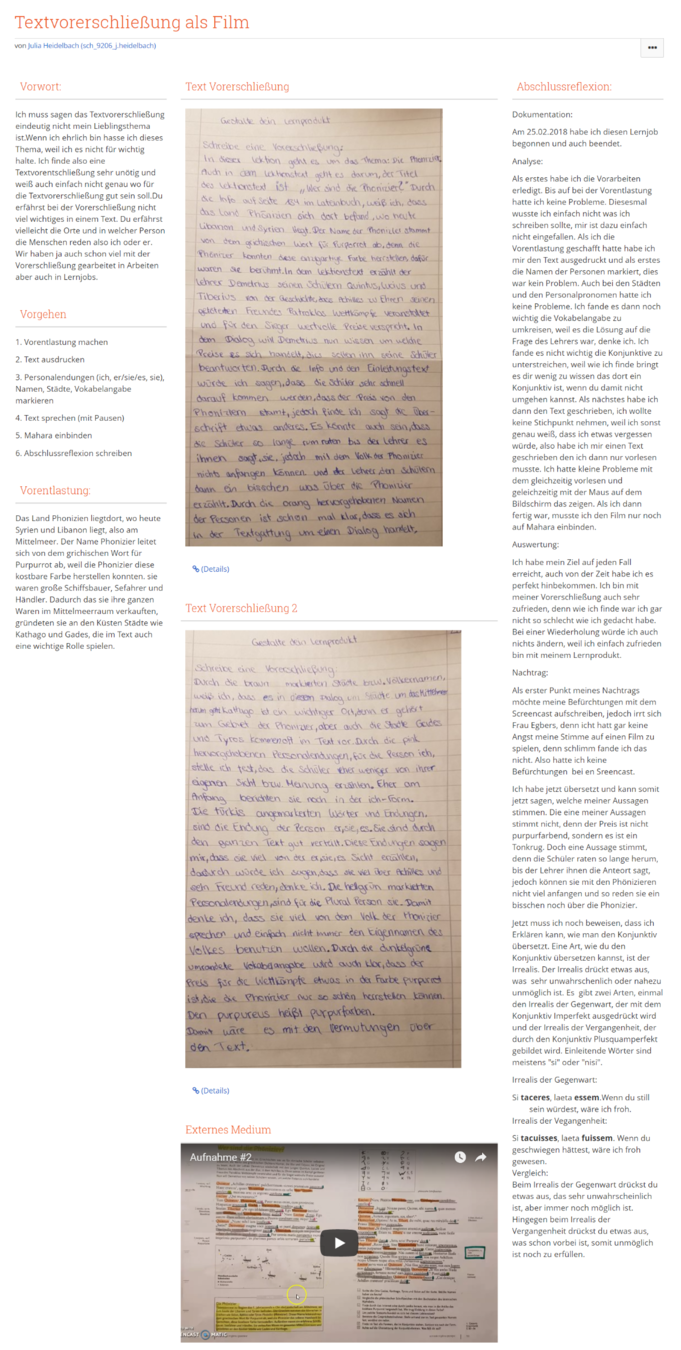 Textvorerschließung als Film
von Julia Heidelbach (sch_9206_j.heidelbach)
Vorwort:
Ich muss sagen das Textvorerschließung
eindeutig nicht mein Lieblingsthema
ist.Wenn ich ehrlich bin hasse ich dieses
Thema, weil ich es nicht für wichtig
halte. Ich finde also eine
Textvorentschließung sehr unötig und
weiß auch einfach nicht genau wo für
die Textvorerschließung gut sein soll.Du
erfährst bei der Vorerschließung nicht
viel wichtiges in einem Text. Du erfährst
vielleicht die Orte und in welcher Person
die Menschen reden also ich oder er.
Wir haben ja auch schon viel mit der
Vorerschließung gearbeitet in Arbeiten
aber auch in Lernjobs.
Vorgehen
1. Vorentlastung machen
2. Text ausdrucken
3. Personalendungen (ich, er/sie/es, sie),
Namen, Städte, Vokabelangabe
markieren
4. Text sprechen (mit Pausen)
5. Mahara einbinden
6. Abschlussreflexion schreiben
Vorentlastung:
Das Land Phonizien liegtdort, wo heute
Syrien und Libanon liegt, also am
Mittelmeer. Der Name Phonizier leitet
sich von dem grichischen Wort für
Purpurrot ab, weil die Phonizier diese
kostbare Farbe herstellen konnten. sie
waren große Schiffsbauer, Sefahrer und
Händler. Dadurch das sie ihre ganzen
Waren im Mittelmeerraum verkauften,
gründeten sie an den Küsten Städte wie
Kathago und Gades, die im Text auch
eine wichtige Rolle spielen.
Text Vorerschließung
Gestalte dein Lernprodukt
Schreibe eine Vorerschließung:
In dieser Lektion geht es um das Thema: Die Phönizier.
Auch in dem Lektionstext geht es darum, der Titel
des Lektionstext ist „Wer sind die Phonizier?" Durch
die Info auf Seite 124 im Lateinbuch, weiß ich, dass
das Land Phönizien sich dort befand, wo heute
Libanon und Syrien liegt. Der Name der Phonizier stammt
von dem griechischen Wort für Purpurrot ab, denn die
Phonizier konnten diese einzigartige Farbe herstellen, dafür
waren sie berühmt. In dem Lektionstext erzählt der
Lehrer Demetrius seinen Schülern Quintus, Lucius und
Tiberius von der Geschichte, dass Achilles zu Ehren seinen
geliebten Freundes Patroklos Wettkämpfe veranstaltet
und für den Sieger wertvolle Preise verspricht. In
dem Dialog will Demetrius nun wissen um welche
Preise es sich handelt, das sollen ihm seine Schüler
beantworten. Durch die Info und den Einleitungstext
würde ich sagen, dass die Schüler sehr schnell
darauf kommen werden, dass der Preis von den
Phoniziern stamt, jedoch finde ich sagt die Über-
schrift etwas anderes. Es könnte auch sein, dass
die Schüler so lange rum raten bis der Lehrer es
ihnen sagt, sie jedoch mit dem Volk der Phonizier
nichts anfangen können und der Lehrer den Schülern
dann ein bisschen was über die Phonizier
erzählt. Durch die orang hervorgehobenen Namen
der Personen ist schon mal klar, dass es sich
in der Textgattung um einen Dialog handelt.
(Details)
Text Vorerschließung 2
Gestalte dein Lernprodukt
Schreibe eine Vorerschließung:
Durch die braun markierten Städte bzw. Völkernamen,
weiß ich, dass es in diesem Dialog um Städte um das Mittelmeer
Kathago ist ein wichtiger Ort, denn er gehört
zum Gebiet der Phonizier, aber auch die Städte Gades
und Tyros kommen oft im Text vor. Durch die pink
hervorgehobenen Personalendungen, für die Person ich,
stelle ich fest, das die Schüler eher weniger von ihrer
eigenen Sicht bzw. Meinung erzählen. Eher am
Anfang berichten sie noch in der ich-Form.
Die türkis angemarkerten Wörter und Endungen,
sind die Endung der Person er, sie, es. Sie sind durch
den ganzen Text gut verteilt. Diese Endungen sagen
mir, dass sie viel von der er, sie, es Sicht erzählen,
dadurch würde ich sagen, dass sie viel über Achilles und
sein Freund reden, denke ich. Die hellgrün markierten
Personalendungen, sind für die Plural Person sie. Damit
denke ich, dass sie viel von dem Volk der Phonizier
sprechen und einfach nicht immer den Eigennamen des
Volkes benutzen wollen. Durch die dunkelgrüne
umrandete Vokabelangabe wird auch klar, dass der
Preis für die Wettkämpfe etwas in der Farbe purpurrot
ist, die die Phonizier nur so schön herstellen können.
Den purpureus heißt purpurfarben.
Damit wäre es mit den Vermutungen über
den Text.
(Details)
Externes Medium
Aufnahme #2
Abschlussreflexion:
Dokumentation:
Am 25.02.2018 habe ich diesen Lernjob
begonnen und auch beendet.
Analyse:
Als erstes habe ich die Vorarbeiten
erledigt. Bis auf bei der Vorentlastung
hatte ich keine Probleme. Diesesmal
wusste ich einfach nicht was ich
schreiben sollte, mir ist dazu einfach
nicht eingefallen. Als ich die
Vorentlastung geschafft hatte habe ich
mir den Text ausgedruckt und als erstes
die Namen der Personen markiert, dies
war kein Problem. Auch bei den Städten
und den Personalpronomen hatte ich
keine Probleme. Ich fande es dann noch
wichtig die Vokabelangabe zu
umkreisen, weil es die Lösung auf die
Frage des Lehrers war, denke ich. Ich
fande es nicht wichtig die Konjunktive zu
unterstreichen, weil wie ich finde bringt
es dir wenig zu wissen das dort ein
Konjunktiv ist, wenn du damit nicht
umgehen kannst. Als nächstes habe ich
dann den Text geschrieben, ich wollte
keine Stichpunkt nehmen, weil ich sonst
genau weiß, dass ich etwas vergessen
würde, also habe ich mir einen Text
geschrieben den ich dann nur vorlesen
musste. Ich hatte kleine Probleme mit
dem gleichzeitig vorlesen und
geleichzeitig mit der Maus auf dem
Bildschirm das zeigen. Als ich dann
fertig war, musste ich den Film nur noch
auf Mahara einbinden.
Auswertung:
Ich habe mein Ziel auf jeden Fall
erreicht, auch von der Zeit habe ich es
perfekt hinbekommen. Ich bin mit
meiner Vorerschließung auch sehr
zufrieden, denn wie ich finde war ich gar
nicht so schlecht wie ich gedacht habe.
Bei einer Wiederholung würde ich auch
nichts ändern, weil ich einfach zufrieden
bin mit meinem Lernprodukt.
Nachtrag:
Als erster Punkt meines Nachtrags
möchte meine Befürchtungen mit dem
Screencast aufschreiben, jedoch irrt sich
Frau Egbers, denn icht hatt gar keine
Angst meine Stimme auf einen Film zu
spielen, denn schlimm fande ich das
nicht. Also hatte ich keine
Befürchtungen bei en Sreencast.
Ich habe jetzt übersetzt und kann somit
jetzt sagen, welche meiner Aussagen
stimmen. Die eine meiner Aussagen
stimmt nicht, denn der Preis ist nicht
purpurfarbend, sondern es ist ein
Tonkrug. Doch eine Aussage stimmt,
denn die Schüler raten so lange herum,
bis der Lehrer ihnen die Anteort sagt,
jedoch können sie mit den Phönizieren
nicht viel anfangen und so reden sie ein
bisschen noch über die Phonizier.
Jetzt muss ich noch beweisen, dass ich
Erklären kann, wie man den Konjunktiv
übersetzt. Eine Art, wie du den
Konjunktiv übersetzen kannst, ist der
Irrealis. Der Irrealis drückt etwas aus,
was sehr unwahrschenlich oder nahezu
unmöglich ist. Es gibt zwei Arten, einmal
den Irrealis der Gegenwart, der mit dem
Konjunktiv Imperfekt ausgedrückt wird
und der Irrealis der Vergangenheit, der
durch den Konjunktiv Plusquamperfekt
gebildet wird. Einleitende Wörter sind
meistens "si" oder "nisi".
Irrealis der Gegenwart:
Si taceres, laeta essem.Wenn du still
sein würdest, wäre ich froh.
Irrealis der Vegangenheit:
Si tacuisses, laeta fuissem. Wenn du
geschwiegen hättest, wäre ich froh
gewesen.
Vergleich:
Beim Irrealis der Gegenwart drückst du
etwas aus, das sehr unwahrscheinlich
ist, aber immer noch möglich ist.
Hingegen beim Irrealis der
Vergangenheit drückst du etwas aus,
was schon vorbei ist, somit unmöglich
ist noch zu erfüllen.